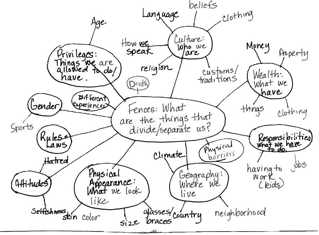 beliefs
Language
clothing
Age
Culture:
who we
are
How we
speak
Privileges:
Things we are
allowed to do/
have.
religion
customs/
traditions
Money
Property
Wealth:
What we
have
things
clothing
Deeds
Different
Experiences
Gender
Sports
Fences: What
are the things that
divide/separate us?
Rules &
Laws
Hatred
Physical
barriers
Responsibilities
what we have
to do.
having to
work
(kids)
jobs
Climate
Geography:
Where we
live
Physical
Appearance:
What we look
like
Attitudes
Selfishness
skin color
size
glasses/
braces
country
neighborhood